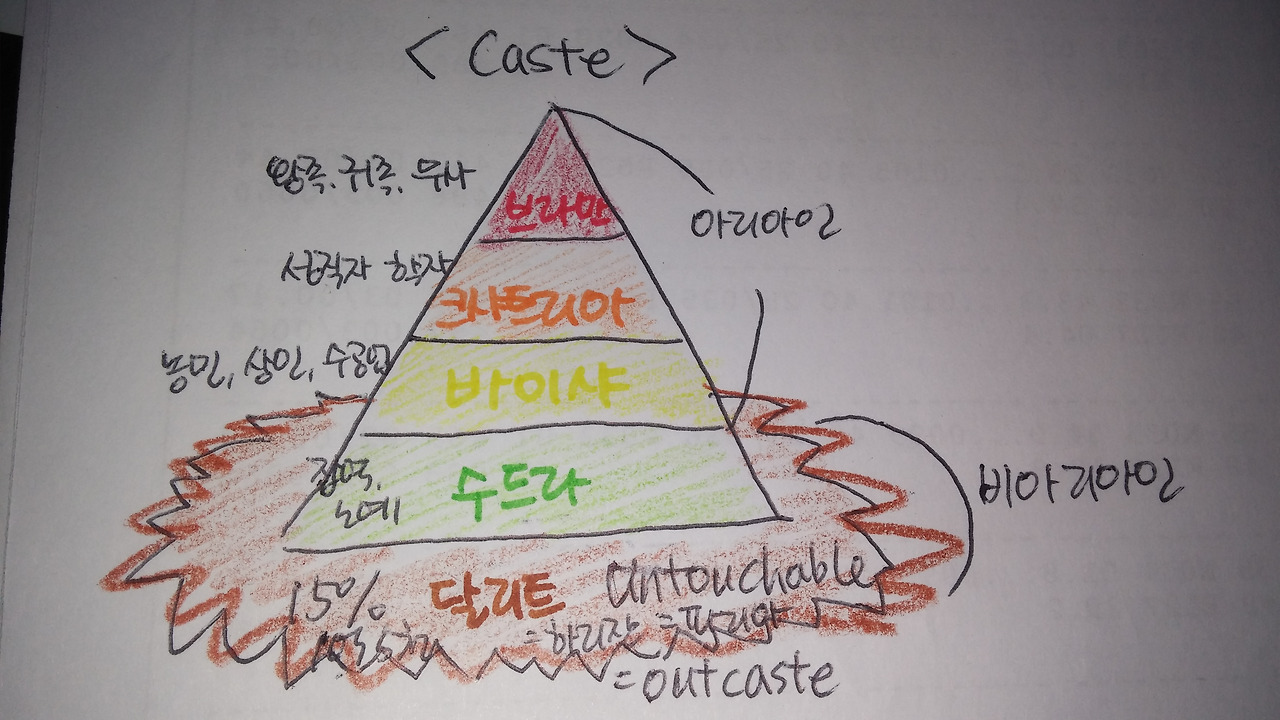 < Caste >
왕족, 귀족, 무사
브라만
아리아인
성직자 학자
크샤트리아
농민, 상인, 수공업
바이샤
잡역,
노예
수드라
비아리아인
15%
달리트
untouchable
=하리잔 =파리아
=outcaste